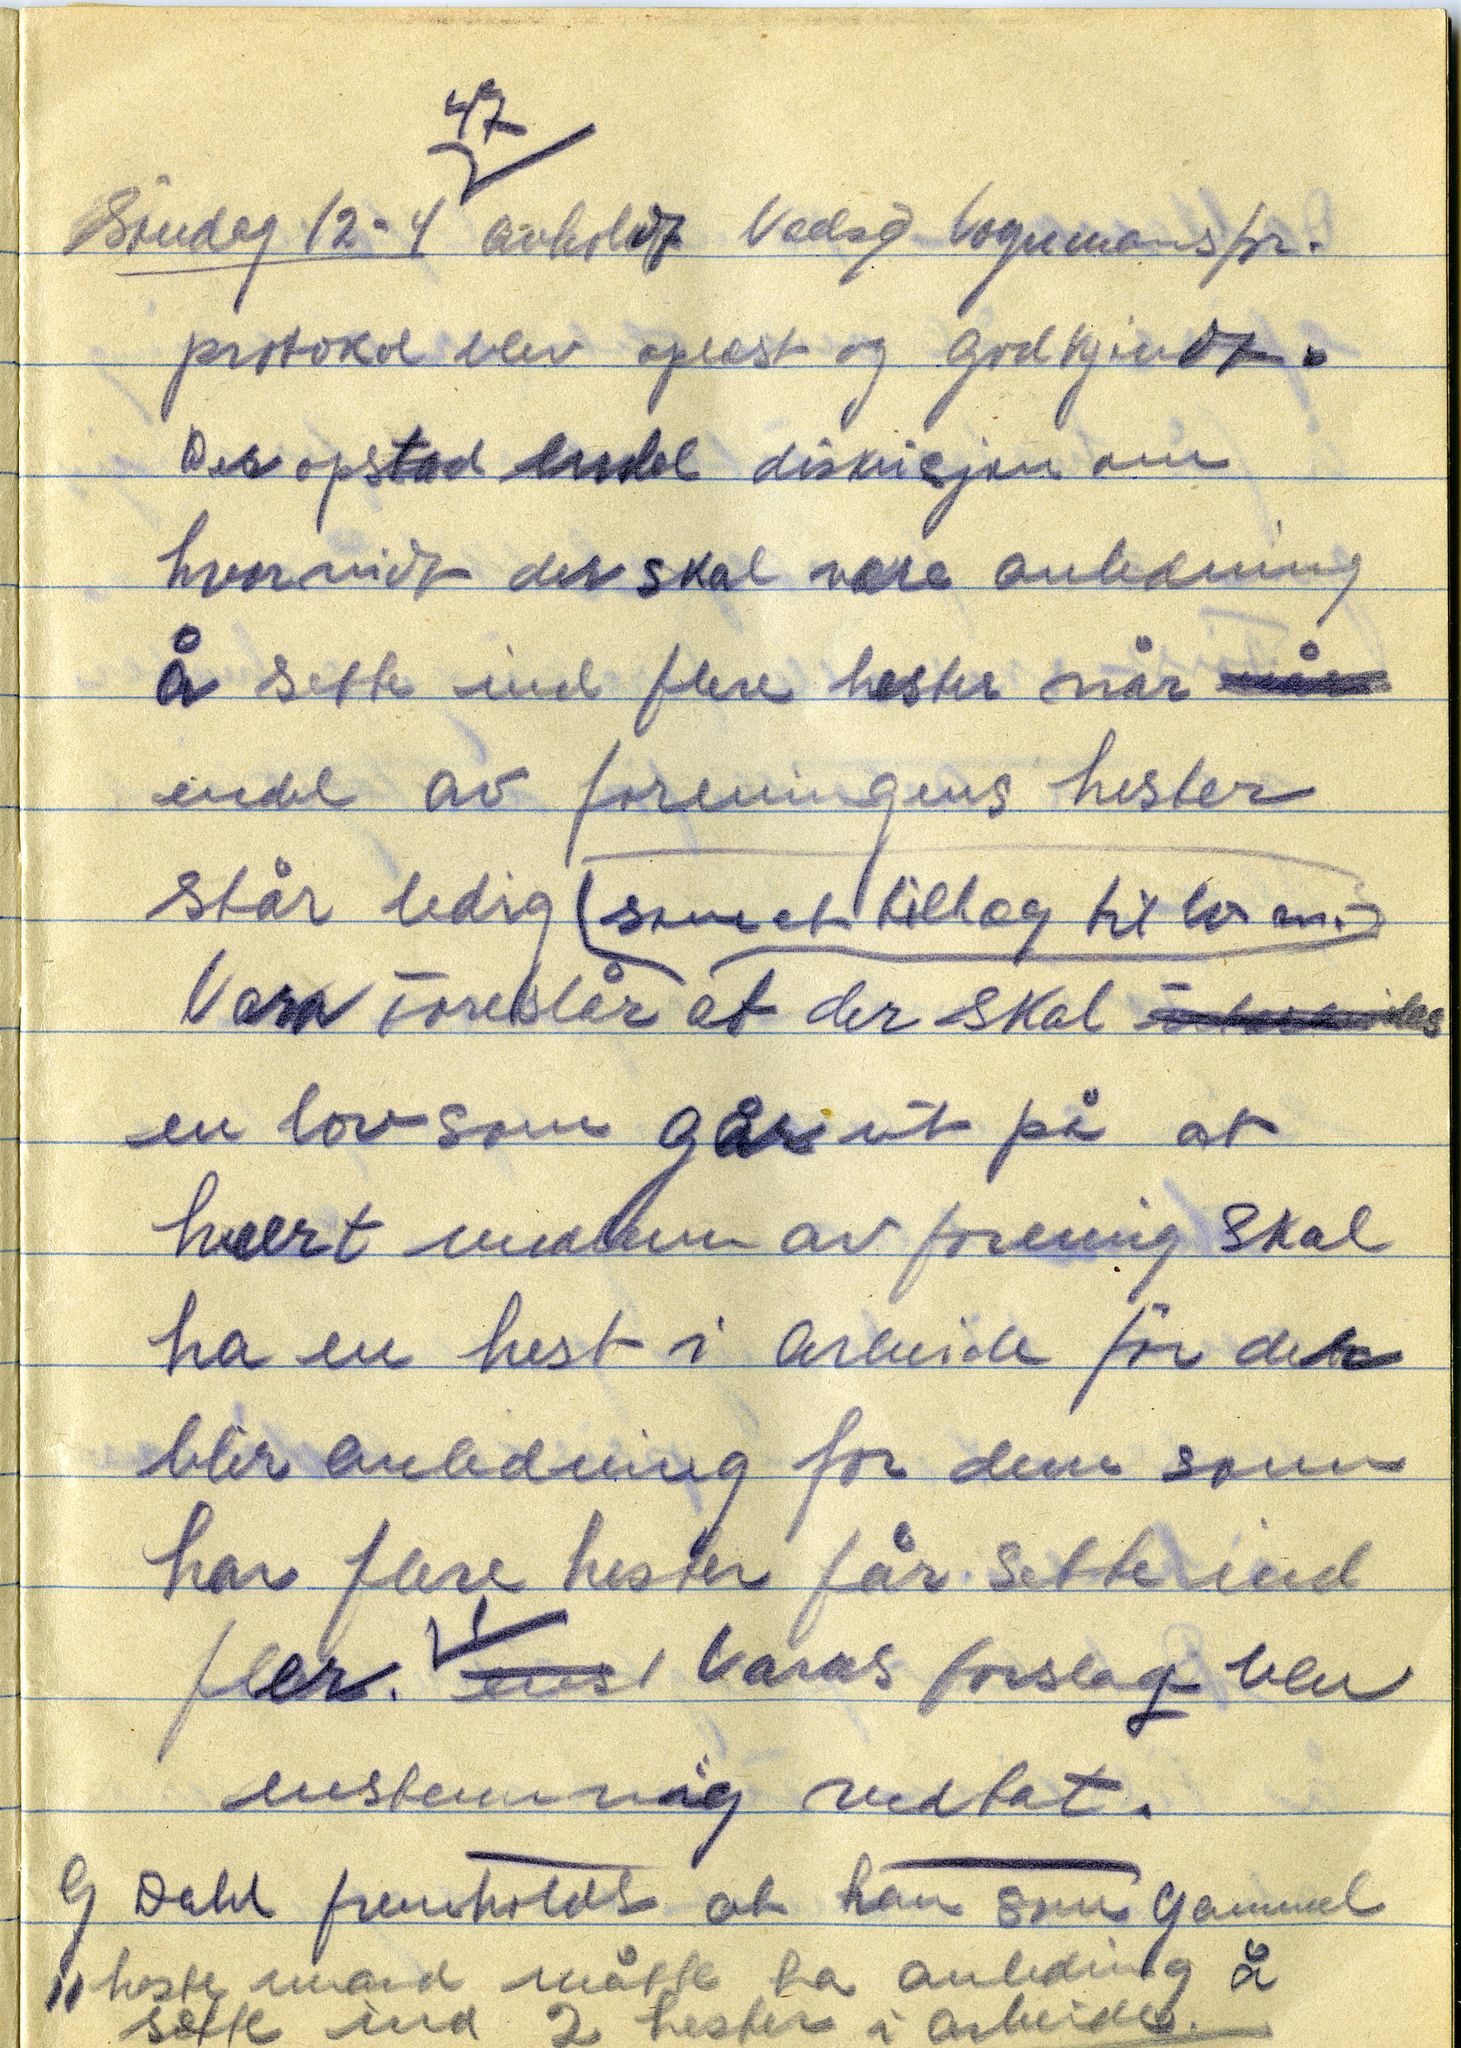 47
Søndag 12-4 avholdt Vadsø Vognmansfor.
protokol blev oplest og godkjendt.
Der opstod endel diskusjon om
hvorvidt der skal være anledning
å sette ind flere hester når når
endel av foreningens hester
står ledig (som et tillæg til lov
Vara foreslår at der skal
en lov som går ut på at
hvert medlem av forening skal
ha en hest i arbeide før det
blir anledning for dem som
har flere hester får sette ind
fler. Varas forslag blev
enstemmig vedtat.
G Dahl fremholdt at han som gammel
" hestemand måtte ha anleding å
sette ind 2 hester i arbeide.